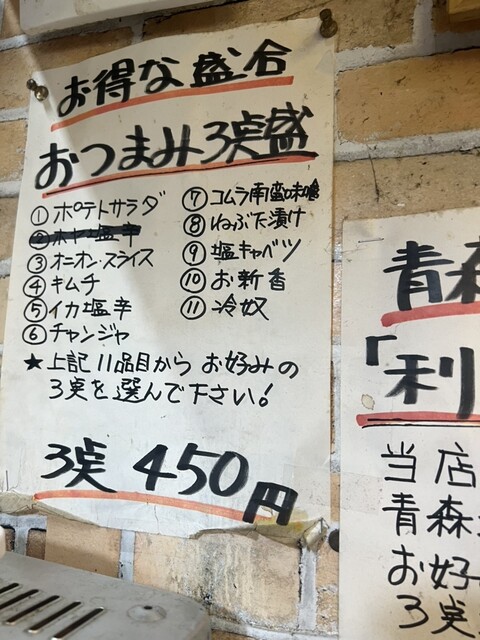 お得な盛合
おつまみ3点盛
① ポテトサラダ
② ホヤ塩辛
③ オニオン・スライス
④ キムチ
⑤ イカ塩辛
⑥ チャンジャ
⑦ コムラ南蛮味噌
⑧ ねぶた漬け
⑨ 塩キャベツ
⑩ お新香
⑪ 冷奴
★上記11品目から お好みの
3点を選んで下さい!
3点 450円
青森
「利
当店
青森
お好み
3点